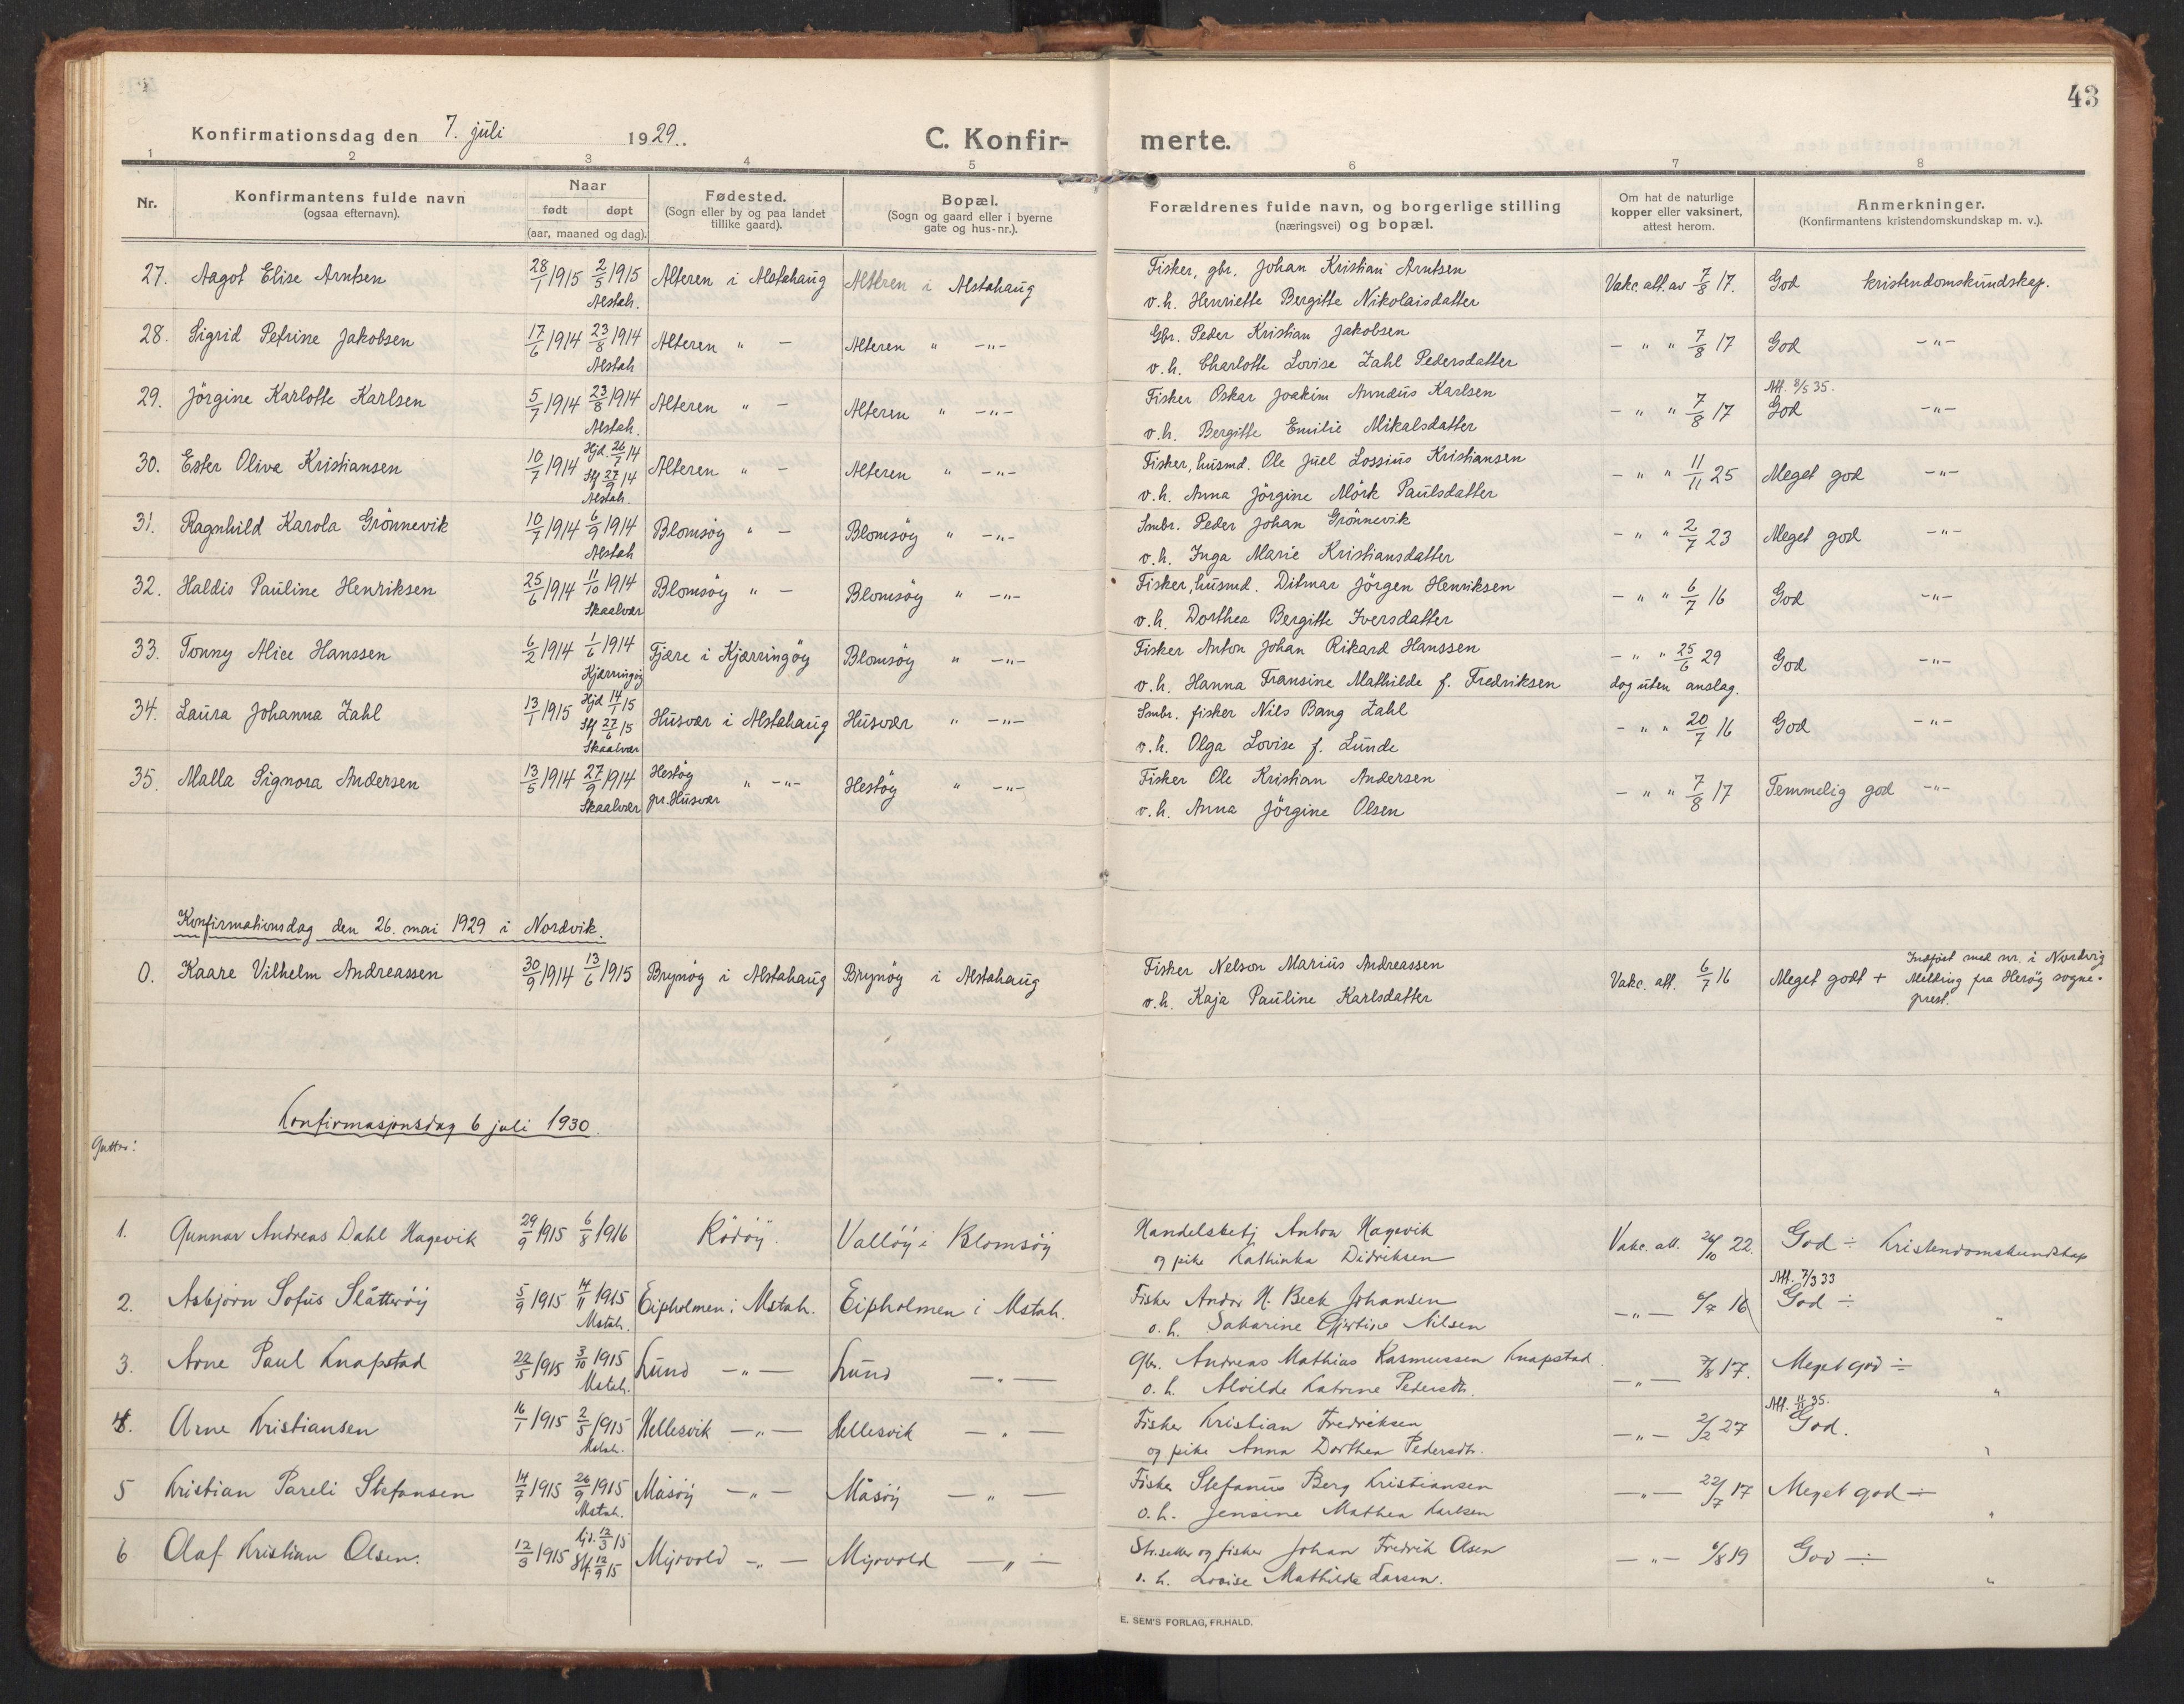 43
Konfirmationsdag den 7. juli 1929. C. Konfir- merte.
1 2 3 4 5 6 7 8
Nr. Konfirmantens fulde navn (ogsaa efternavn). Naar født døpt (aar, maaned og dag). Fødested. (Sogn eller by og paa landet tillike gaard). Bopæl. (Sogn og gaard eller i byerne gate og hus-nr.). Forældrenes fulde navn, og borgerlige stilling (næringsvei) og bopæl. Om hat de naturlige kopper eller vaksinert, attest herom. Anmerkninger. (Konfirmantens kristendomskundskap m. v.).
27. Aagot Elise Arntsen 28/1 1915 2/5 1915 Alteren i Alstahaug Alteren i Alstahaug Fisker, gbr. Johan Kristian Arntsen Vakc. att. av 7/8 17. God kristendomskundskap.
Alstah. v.h. Henriette Bergitte Nikolaisdatter
28. Sigrid Petrine Jakobsen 17/6 1914 23/8 1914 Alteren " — Alteren " —"— Gbr. Peder Kristian Jakobsen — " " 7/8 17 God —"—
Alstah v.h. Charlotte Lovise Zahl Pedersdatter
29. Jörgine Karlotte Karlsen 5/7 1914 23/8 1914 Alteren " — Alteren " —"— Fisker Oskar Joakim Arndius Karlsen — " " 7/8 17 Att. 8/5 35. God —"—
Alstah. v.h. Bergitte Emilie Mikalsdatter
30. Ester Oliva Kristiansen 10/7 1914 Hjd. 26/7 14 Alteren " — Alteren " —"— Fisker, husmd. Ole Juel Lossius Kristiansen — " " 11/11 25 Meget god —"—
Stf 27/9 14
Alstah. v.h. Anna Jörgine Mörk Paulsdatter
31. Ragnhild Karola Grönnevik 10/7 1914 6/9 1914 Blomsöy " — Blomsöy " —"— Smbr. Peder Johan Grönnevik — " " 2/7 23 Meget god —"—
Alstah v.h. Inga Marie Kristiansdatter
32. Haldis Pauline Henriksen 25/6 1914 11/10 1914 Blomsöy " — Blomsöy " —"— Fisker, husmd. Ditmar Jörgen Henriksen — " " 6/7 16 God —"—
Skaalvær v.h. Dorthea Bergitte Iversdatter
33. Tonny Alice Hanssen 6/2 1914 1/6 1914 Fjære i Kjærringöy Blomsöy " —"— Fisker Anton Johan Rikard Hanssen — " " 25/6 29 God —"—
Kjærringöy v.h. Hanna Fransine Mathilde f. Fredriksen dog uten anslag.
34. Laura Johanna Zahl 13/1 1915 Hjd 14/1 15 Husvær i Alstahaug Husvær " —"— Smbr. fisker Nils Bang Zahl — " " 20/7 16 God —"—
Stf 27/6 15
Skaalvær v.h. Olga Lovise f. Lunde
35. Malla Signora Andersen 13/5 1914 27/9 1914 Hestöy " —"— Hestöy " —"— Fisker Ole Kristian Andersen — " " 7/8 17 Temmelig god —"—
Skaalvær pr. Husvær v.h. Anna Jörgine Olsen
Konfirmationsdag den 26. mai 1929 i Nordvik.
0. Kaare Vilhelm Andreassen 30/9 1914 13/6 1915 Brynöy i Alstahaug Brynöy i Alstahaug Fisker Nelson Marius Andreassen Vakc. att. 6/7 16 Meget godt + Indfört med nr. i Nordvig
v.h. Kaja Pauline Karlsdatter Melding fra Heröy sogne-
prest.
Konfirmasjonsdag 6 juli 1930.
Gutter:
1. Gunnar Andreas Dahl Hagevik 29/9 1915 6/8 1916 Rödöy. Vallöy i Blomsöy Handelsbetj Anton Hagevik Vakc. att. 26/10 22. God ÷ Kristendomskundskap
og pike Kathinka Didriksen
2. Asbjörn Sofus Slåtteröy 5/9 1915 14/11 1915 Eipholmen i Alstah. Eipholmen i Alstah. Fisker Andor H. Beck Johansen —"— 6/7 16 Att. 7/3 33 God ÷ "
Alstah. v.h. Sakarine Nilsen
3. Arne Paul Knapstad 22/5 1915 3/10 1915 Lund —"— Lund —"— Gbr. Andreas Mathias Rasmussen Knapstad. —"— 7/8 17. Meget god ÷ "
Alstah. v.h. Alvilde Katrine Pedersdtr.
4. Arne Kristiansen 16/1 1915 2/5 1915 Hellesvik —"— Hellesvik —"— Fisker Kristian Fredriksen —"— 2/2 27 Att. 11/11 35. God. "
Alstah. og pike Anna Dorthea Pedersdtr.
5 Kristian Pareli Stefansen 14/7 1915 26/9 1915 Måsöy —"— Måsöy —"— Fisker Stefanus Berg Kristiansen —"— 22/7 17 Meget god ÷ "
Alstah. v.h. Jensine Mathea Karlsen
6 Olaf Kristian Olsen. 12/3 1915 hjd. 12/3 15 Myrvold —"— Myrvold —"— Str.selger og fisker Johan Fredrik Olsen —"— 6/8 19 God ÷ "
Stf. 12/9 15 v.h. Lovise Mathilde Larsen.
E. SEM'S FORLAG, FR.HALD.